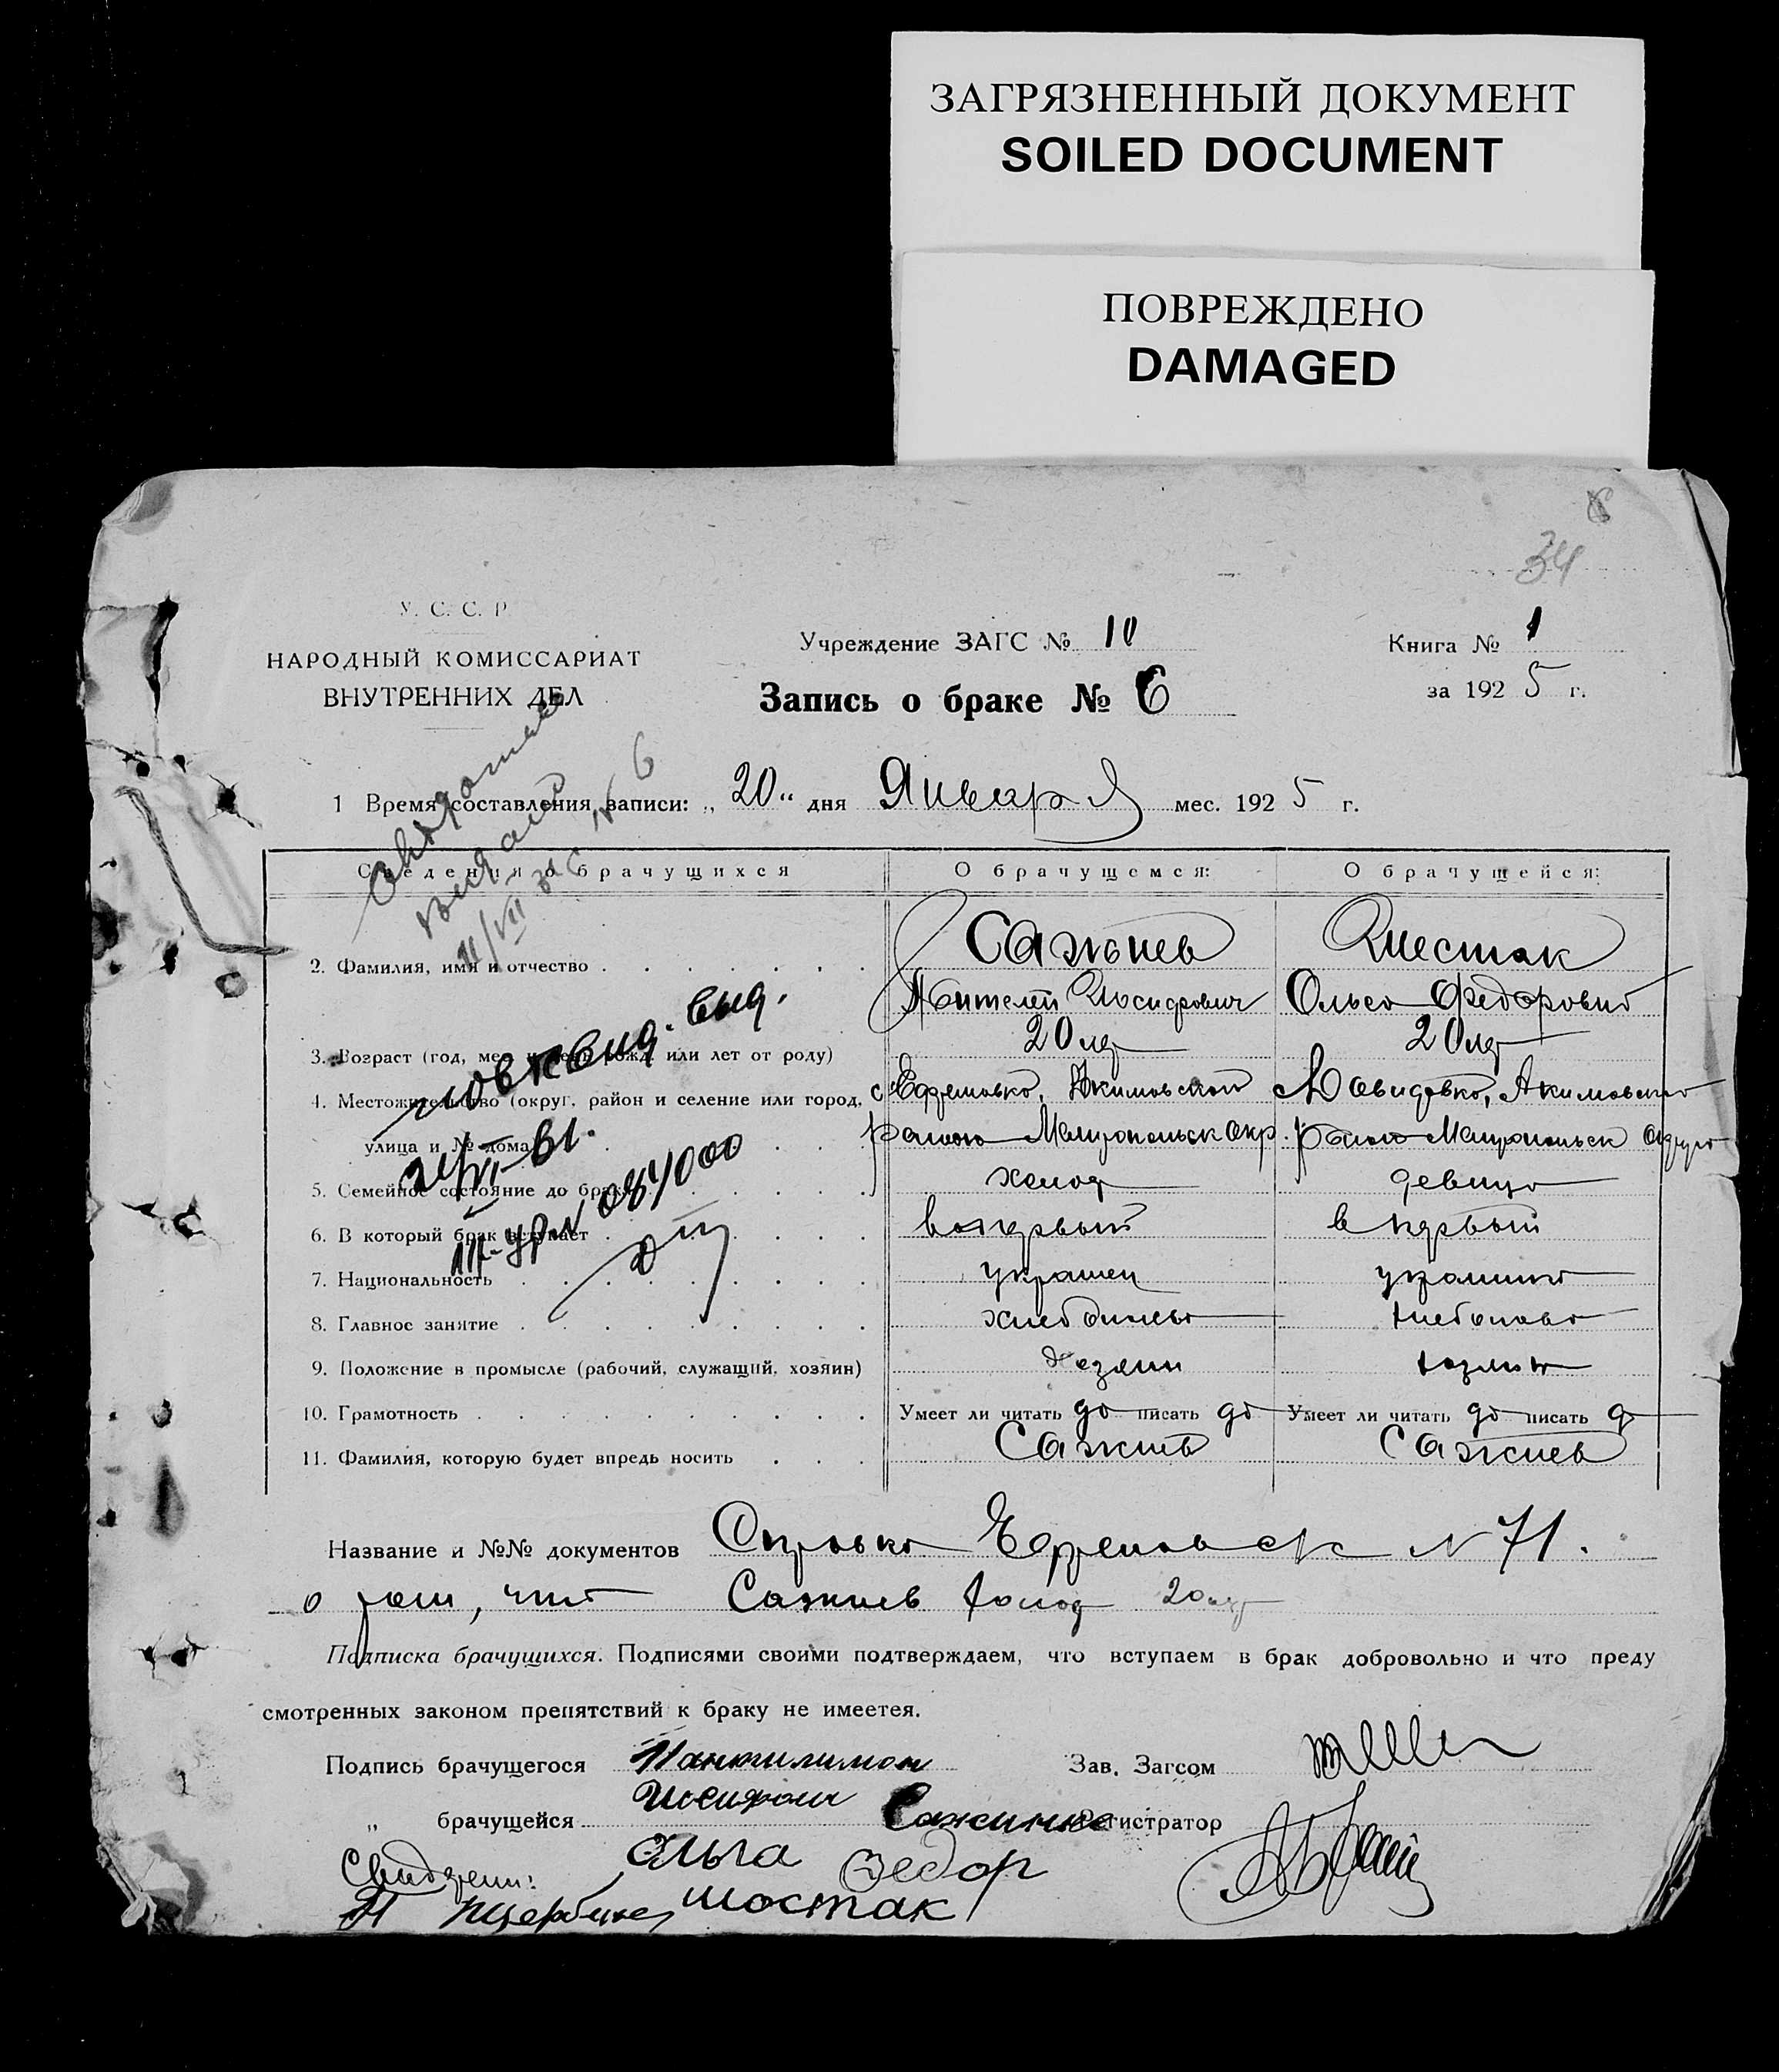 ЗАГРЯЗНЕННЫЙ ДОКУМЕНТ
SOILED DOCUMENT
ПОВРЕЖДЕНО
DAMAGED
34
У. С. С. Р
НАРОДНЫЙ КОМИССАРИАТ
ВНУТРЕННИХ ДЕЛ
Учреждение ЗАГС № 10
Книга № 1
Запись о браке № 6
за 1925 г.
1 Время составления записи: „20“ дня Января мес. 1925 г.
Сведения о брачущихся
О брачущемся:
О брачущейся:
2. Фамилия, имя и отчество
Сажнев
Шестак
Ольга Федоровна
3. Возраст (год, мес. и день рожд. или лет от роду)
20 лет
20 лет
4. Местожительство (округ, район и селение или город,
с Ефремовка, Акимовского
Давидовка, Акимовского
улица и № дома)
района Мелитопольск окр.
района Мелитопольск округа
5. Семейное состояние до брака
холост
девица
6. В который брак вступает
в первый
в первый
7. Национальность
украинец
украинка
8. Главное занятие
хлебопашество
9. Положение в промысле (рабочий, служащий, хозяин)
хозяин
10. Грамотность
Умеет ли читать да писать да
Умеет ли читать да писать да
11. Фамилия, которую будет впредь носить
Сажнев
Сажнев
Название и №№ документов Справка Ефремовск № 71.
о том, что Сажнев холост 20 лет
Подписка брачущихся. Подписями своими подтверждаем, что вступаем в брак добровольно и что преду
смотренных законом препятствий к браку не имеется.
Подпись брачущегося Пантилимон
Зав. Загсом
„ брачущейся
Регистратор
Ольга Федор
Свидетели:
шостак